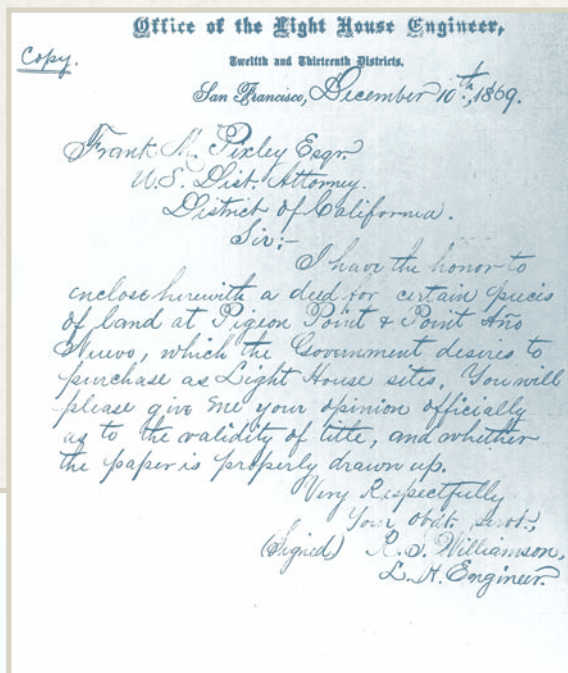 Office of the Light House Engineer,
Copy.
Twelfth and Thirteenth Districts.
San Francisco, December 10th, 1869.
Frank M. Pixley Esqr.
U.S. Dist. Attorney.
District of California.
Sir:-
I have the honor to
enclose herewith a deed for certain pieces
of land at Pigeon Point & Point Año
Nuevo, which the Government desires to
purchase as Light House sites. You will
please give me your opinion officially
as to the validity of title, and whether
the paper is properly drawn up.
Very Respectfully
Your obdt. servt.,
(Signed) R. S. Williamson,
L. H. Engineer.